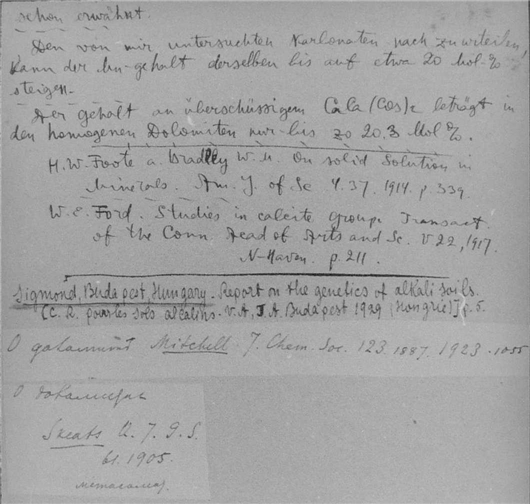 schon erwähnt.
Den von mir untersuchten Karbonaten nach zu urteilen,
kann der Mn-gehalt derselben bis auf etwa 20 Mol-%
steigen.
Der gehalt an überschüssigem CaCa(CO3)2 beträgt in
den homogenen Dolomiten nur bis zo 20.3 Mol %.
H.W. Foote a. Bradley W.M. On solid Solution in
Minerals. Am. J. of Sc 4. 37. 1914. p. 339
W.E. Ford. Studies in calcite Group. Transact.
of the Conn. Acad of Arts and Sc. V 22, 1917.
N-Haven. p. 211.
Sigmond, Budapest, Hungary. Report on the genetics of alkali soils.
(C. R. pour les sols alcalins. V. A, I. A. Budapest 1929 (Hongrie)] p. 5.
О доломит Mitchell J. Chem. Soc. 123 1887 1923 1055
О
Skeats Q. J. G. S.
61. 1905.